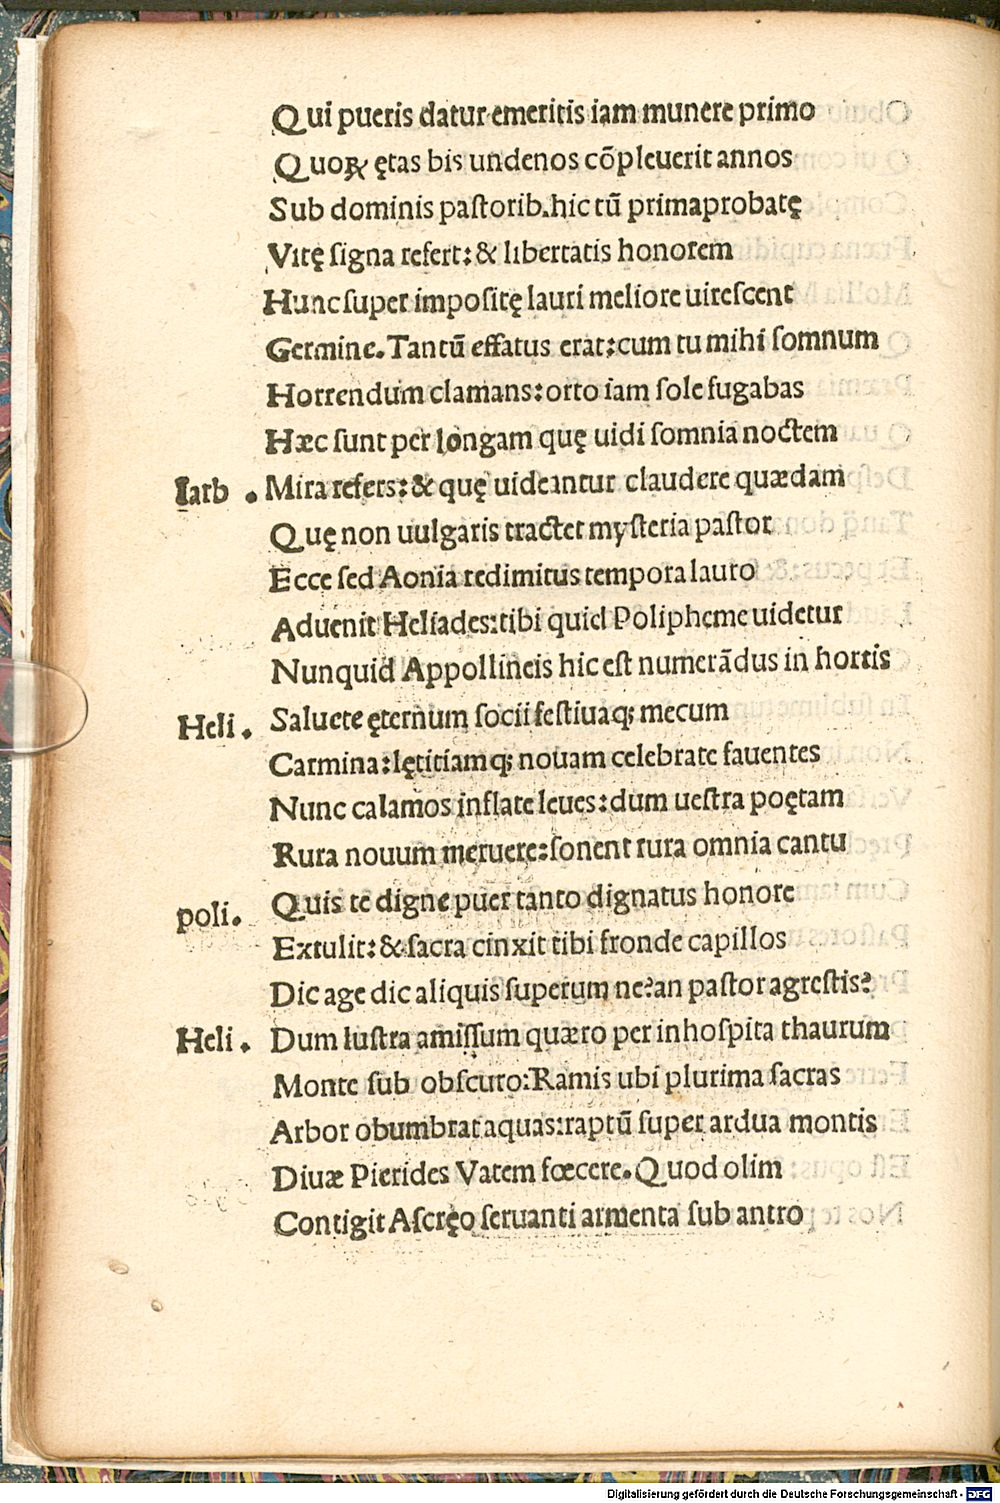 Qui pueris datur emeritis iam munere primo
Quoꝝ ętas bis undenos cōpleuerit annos
Sub dominis paſtorib.hic tū primaprobatę
Vitę ſigna refert: & libertatis honorem
Hunc ſuper impoſitę lauri meliore uireſcent
Germine. Tantū effatus erat:cum tu mihi ſomnum
Horrendum clamans:orto iam ſole fugabas
Hæc ſunt per longam quę uidi ſomnia noctem
Iarb . Mira refers:& quę uideantur claudere quædam
Quę non uulgaris tractet myſteria paſtor
Ecce ſed Aonia redimitus tempora lauro
Aduenit Heliades:tibi quid Polipheme uidetur
Nunquid Appollineis hic eſt numerādus in hortis
Heli. Saluete ęternum ſocii feſtiuaq; mecum
Carmina:lętitiamq; nouam celebrate fauentes
Nunc calamos inflate leues:dum ueſtra poętam
Rura nouum meruere:ſonent rura omnia cantu
poli. Quis te digne puer tanto dignatus honore
Extulit:& ſacra cinxit tibi fronde capillos
Dic age dic aliquis ſuperum ne?an paſtor agreſtis?
Heli. Dum luſtra amiſſum quæro per inhoſpita thaurum
Monte ſub obſcuro:Ramis ubi plurima ſacras
Arbor obumbrat aquas:raptū ſuper ardua montis
Diuæ Pierides Vatem fœcere. Quod olim
Contigit Aſcręo ſeruanti armenta ſub antro
Digitalisierung gefördert durch die Deutsche Forschungsgemeinschaft - DFG